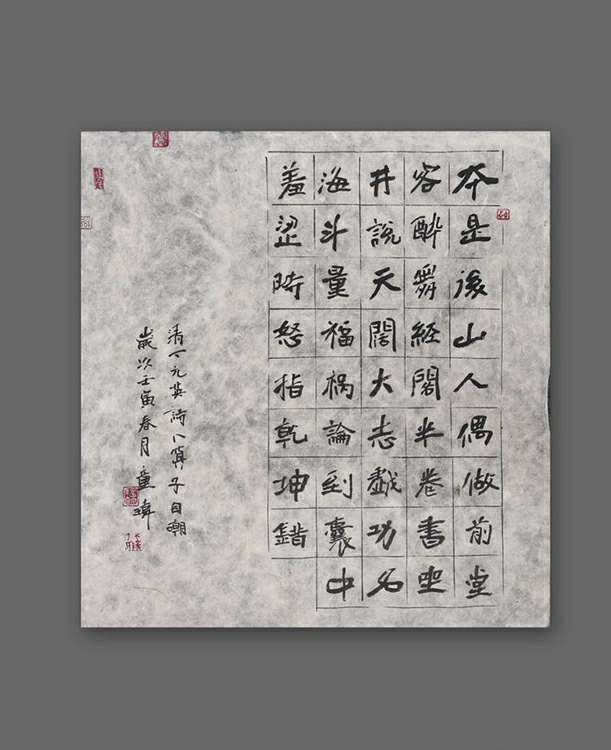 本是後山人偶做前堂
客醉舞經閣半卷書坐
井說天闊大志戲功名
海斗量福祸論到囊中
羞澀時怒指乾坤錯
丁元英詩卜算子自嘲
歲次壬寅春月童瑋